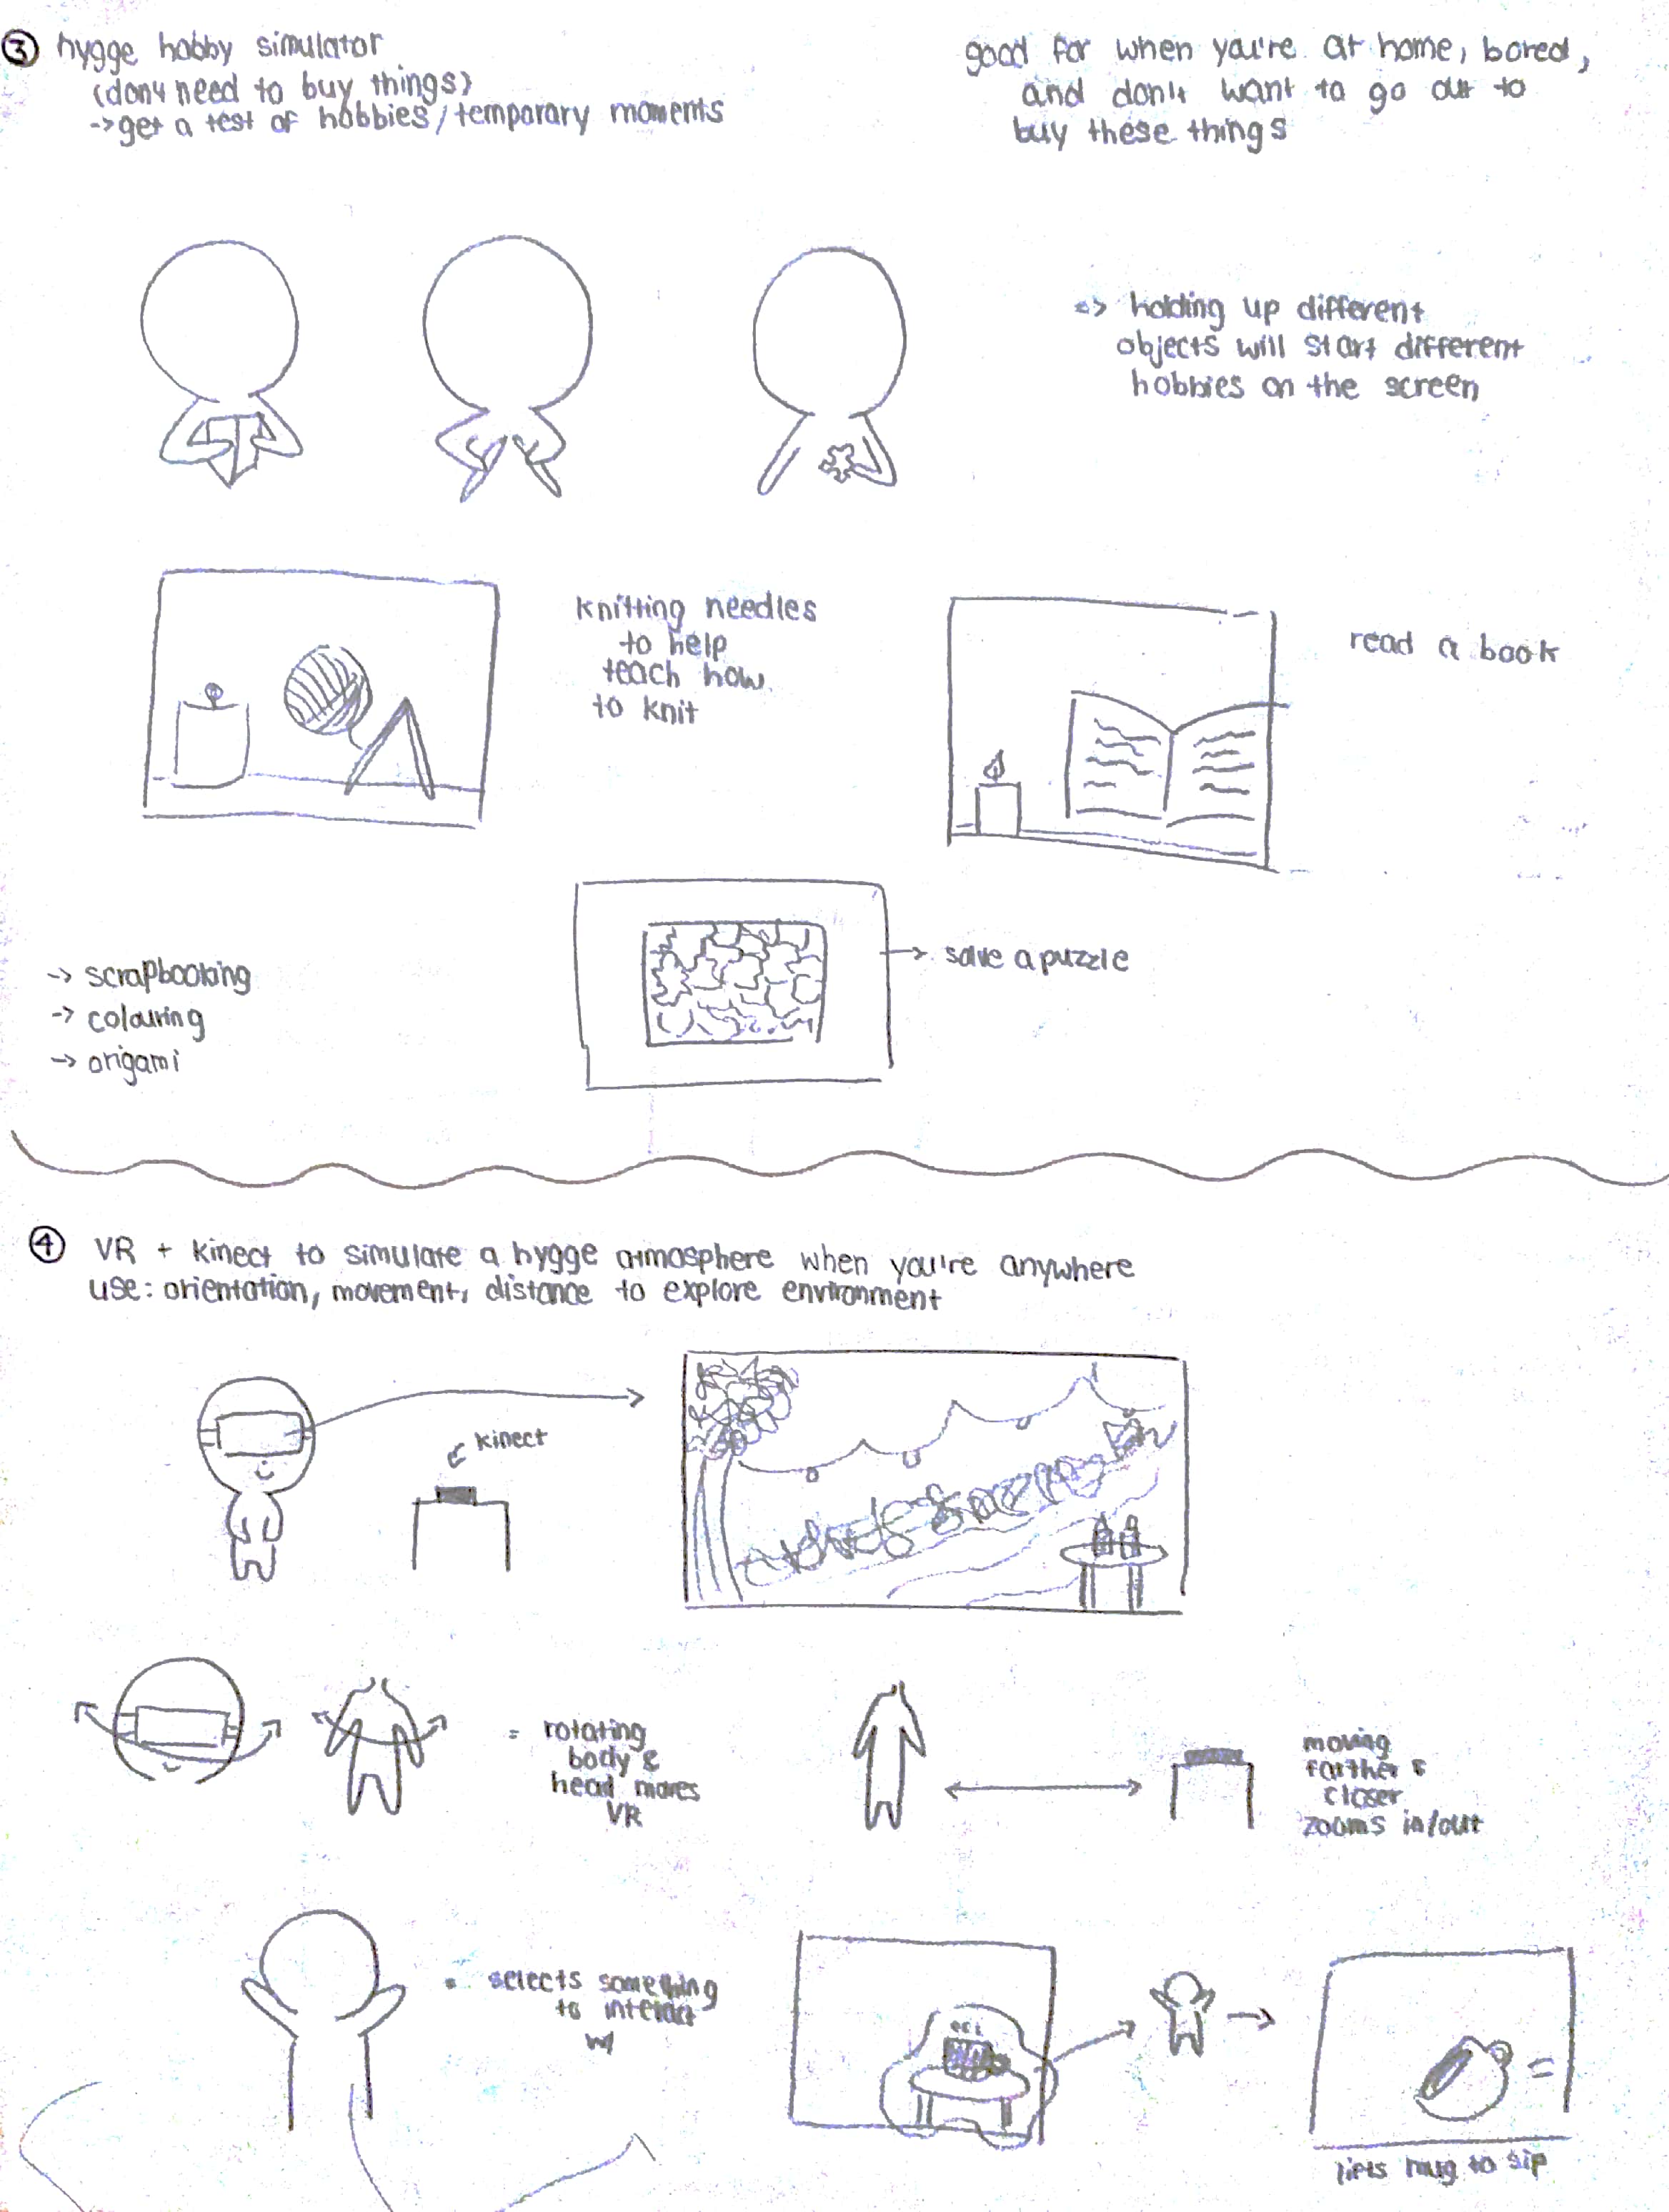 ③ hygge hobby simulator
(don't need to buy things)
-> get a test of hobbies/temporary moments
good for when you're at home, bored,
and don't want to go out to
buy these things
=> holding up different
objects will start different
hobbies on the screen
knitting needles
to help
teach how
to knit
read a book
-> scrapbooking
-> colouring
-> origami
-> solve a puzzle
④ VR + kinect to simulate a hygge atmosphere when you're anywhere
use: orientation, movement, distance to explore environment
kinect
= rotating
body &
head moves
VR
moving
farther &
closer
zooms in/out
= selects something
to interact
w/
lifts mug to sip